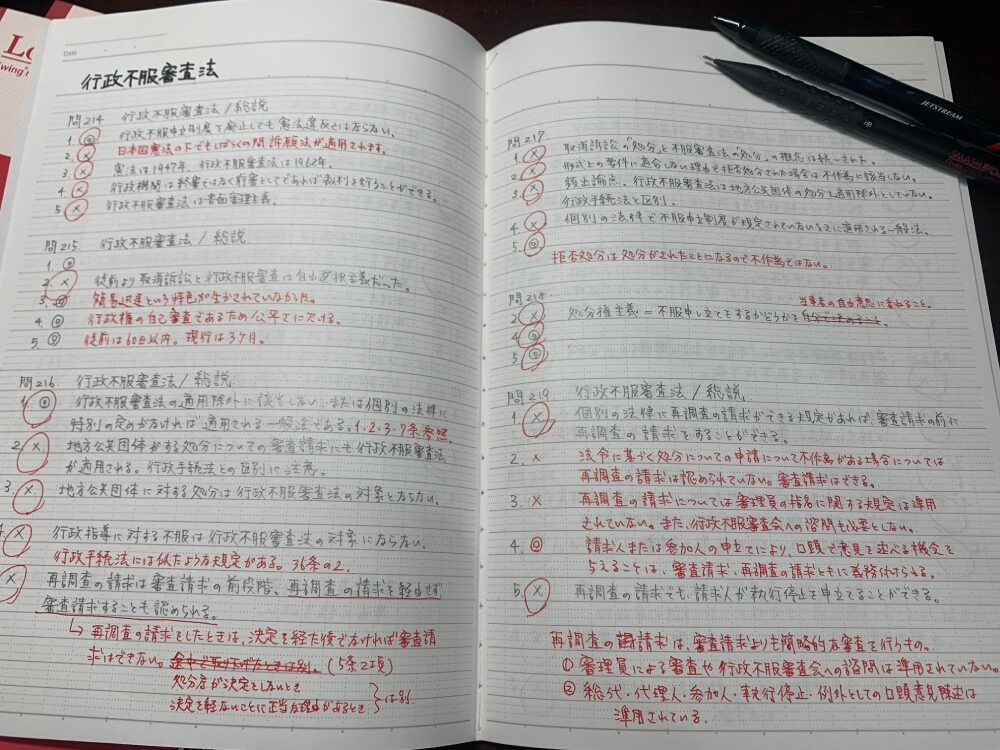 Date
行政不服審査法
問214 行政不服審査法/総説
1. ◎ 行政不服申立制度を廃止しても憲法違反とはならない。
日本国憲法の下でもしばらくの間訴願法が適用されます。
2. ×
3. × 憲法は1947年、行政不服審査法は1962年。
4. × 行政機関は終審ではなく前審としてであれば裁判を行うことができる。
5. × 行政不服審査法は書面審理主義。
問215 行政不服審査法/総説
1. ◎
2. × 従前より取消訴訟と行政不服審査は自由選択主義だった。
3. 簡易迅速という特色が生かされていなかった。
4. ◎ 行政権の自己審査であるため公平さに欠ける。
5. ◎ 従前は60日以内。現行は3ヶ月。
問216 行政不服審査法/総説
1. ◎ 行政不服審査法の適用除外に該当しない、または個別の法律に
特別の定めがなければ適用される一般法である。1・2・3・7条参照。
2. × 地方公共団体がする処分についての審査請求にも行政不服審査法
が適用される。行政手続法との区別に注意。
3. × 地方公共団体に対する処分は行政不服審査法の対象とならない。
4. × 行政指導に対する不服は行政不服審査法の対象にならない。
行政手続法には似たような規定がある。36条の2.
× 再調査の請求は審査請求の前段階。再調査の請求を経由せず、
審査請求することも認められる。
↳ 再調査の請求をしたときは、決定を経た後でなければ審査請
求はできない。途中で取り下げたときは別。(5条2項)
処分者が決定をしないとき
決定を経ないことに正当な理由があるとき
}は別
問217
1. × 取消訴訟の「処分」と不服審査法の「処分」の概念は統一された。
2. × 形式上の要件に適合しない理由で拒否処分された場合は不作為に該当しない。
3. × 頻出論点。行政不服審査法は地方公共団体の処分を適用除外としていない。
行政手続法と区別。
4. × 個別の法律で不服申立制度が規定されていないときに適用される一般法。
5. ◎
拒否処分は処分がされたことになるので不作為ではない。
問218.
当事者の自由意思に委ねること。
2 × 処分権主義=不服申し立てをするかどうかを自分で決めること。
4 ◎
5 ◎
問219 行政不服審査法/総説
1. × 個別の法律に再調査の請求ができる規定があれば、審査請求の前に
再調査の請求をすることができる。
2. × 法令に基づく処分についての申請について不作為がある場合については
再調査の請求は認められていない。審査請求はできる。
3. × 再調査の請求については審理員の指名に関する規定は準用
されていない。また、行政不服審査会への諮問も必要としない。
4. ◎ 請求人または参加人の申立てにより、口頭で意見を述べる機会を
与えることは、審査請求・再調査の請求ともに義務付けられる。
5. × 再調査の請求でも、請求人が執行停止を申立てることができる。
再調査の請求は、審査請求よりも簡略的な審査を行うもの。
① 審理員による審査や行政不服審査会への諮問は準用されていない。
② 総代・代理人・参加人・執行停止・例外としての口頭意見陳述は
準用されている。
JETSTREAM
HB